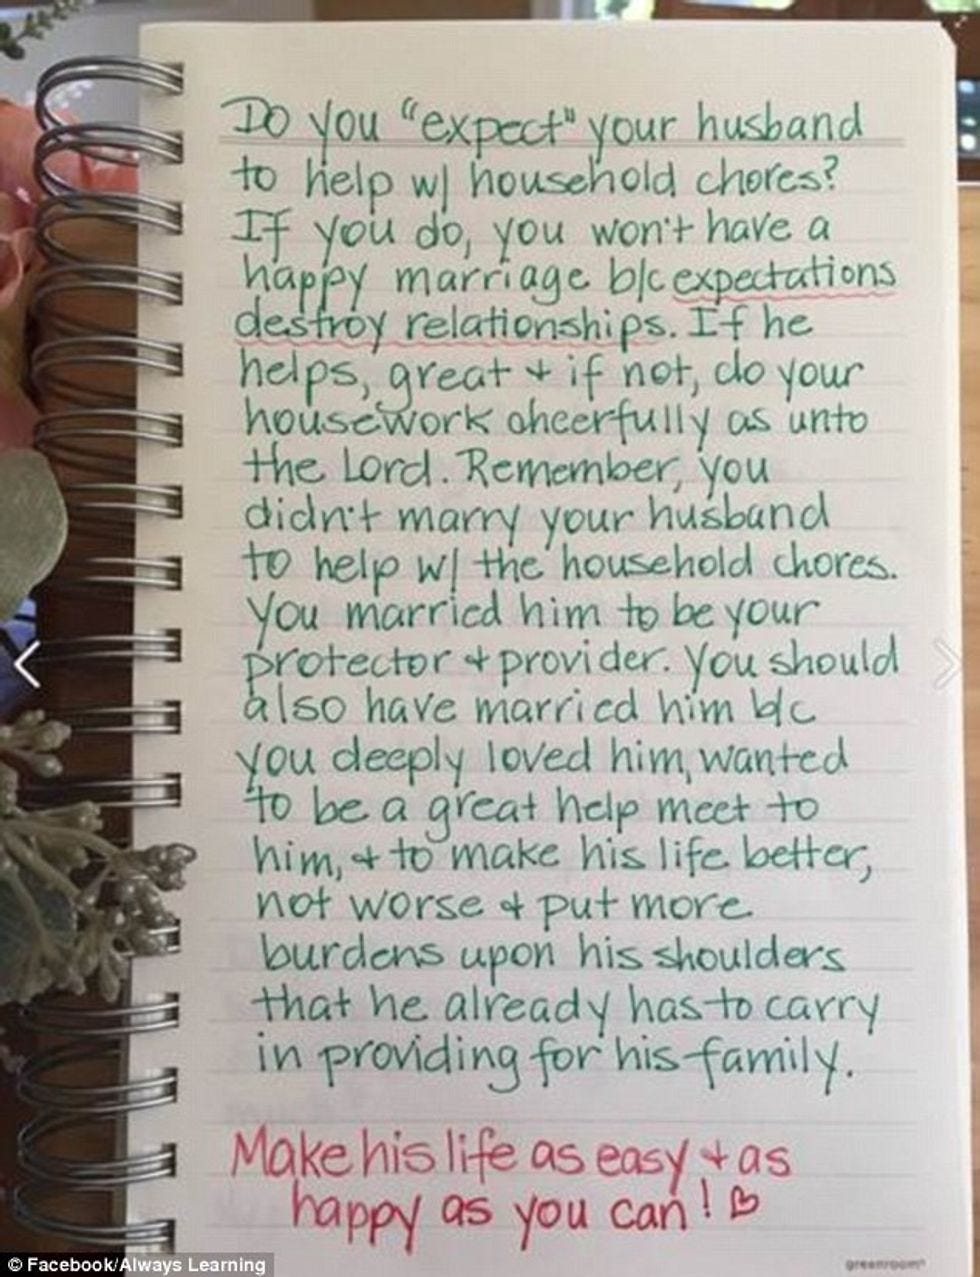 Do you "expect" your husband
to help w/ household chores?
If you do, you won't have a
happy marriage b/c expectations
destroy relationships. If he
helps, great + if not, do your
housework cheerfully as unto
the Lord. Remember, you
didn't marry your husband
to help w/ the household chores.
You married him to be your
protector + provider. You should
also have married him b/c
you deeply loved him, wanted
to be a great help meet to
him, + to make his life better,
not worse + put more
burdens upon his shoulders
that he already has to carry
in providing for his family.
Make his life as easy + as
happy as you can! ♡
greenroom
© Facebook/Always Learning